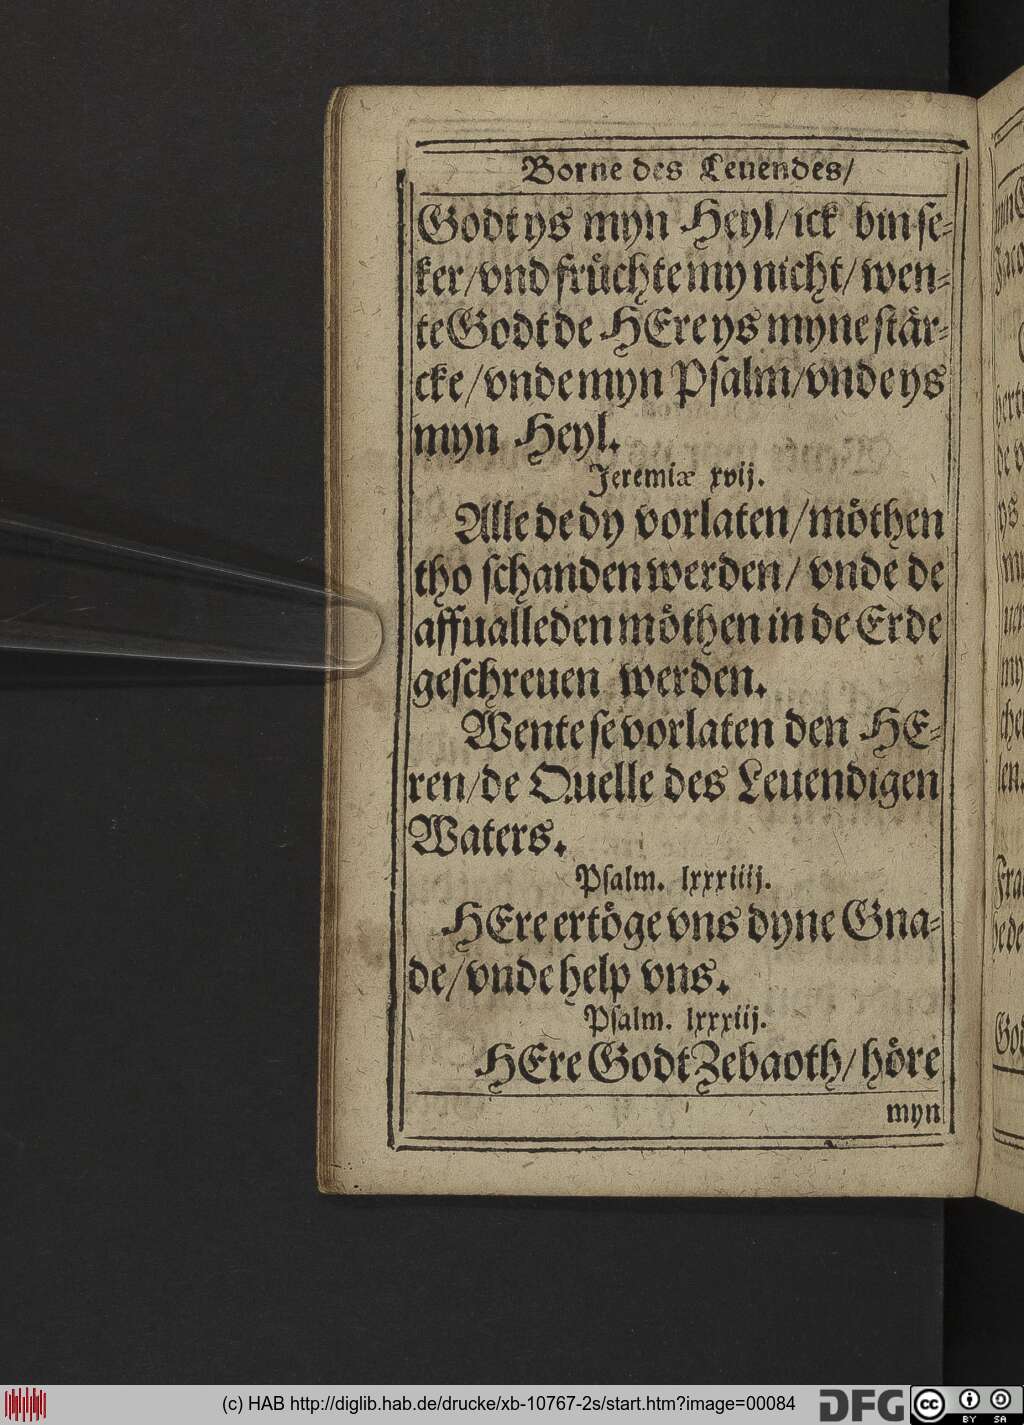 Borne des Leuendes/
Godt ys myn Heyl/ ick bin se-
ker/ vnd früchte my nicht/ wen-
te Godt de HEre ys myne stär-
cke/ vnde myn Psalm/ vnde ys
myn Heyl.
Jeremiæ xvij.
Alle de dy vorlaten/ möthen
tho schanden werden/ vnde de
affualleden möthen in de Erde
geschreuen werden.
Wente se vorlaten den HE-
ren/ de Quelle des Leuendigen
Waters.
Psalm. lxxxiiij.
HEre ertöge vns dyne Gna-
de/ vnde help vns.
Psalm. lxxxiij.
HEre Godt Zebaoth/ höre
myn
(c) HAB http://diglib.hab.de/drucke/xb-10767-2s/start.htm?image=00084
DFG
cc BY SA